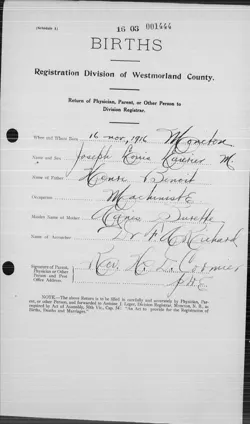 16 03 001444
BIRTHS
Registration Division of Westmorland County.
Return of Physician, Parent, or Other Person to
Division Registrar.
When and Where Born 16 Nov, 1916 Moncton
Name and Sex Joseph M
Name of Father Henri Benoit
Occupation Machinist
Maiden Name of Mother Agnes
Name of Accoucheur Dr F. A. Richard
Signature of Parent,
Physician or Other
Person and Post
Office Address
Rev. H. D. Cormier
NOTE.—The above Return is to be filled in carefully and accurately by Physician, Par-
ent, or other Person, and forwarded to Antoine J. Leger, Division Registrar, Moncton, N. B., as
required by Act of Assembly, "An Act to provide for the Registration of
Births, Deaths and Marriages."